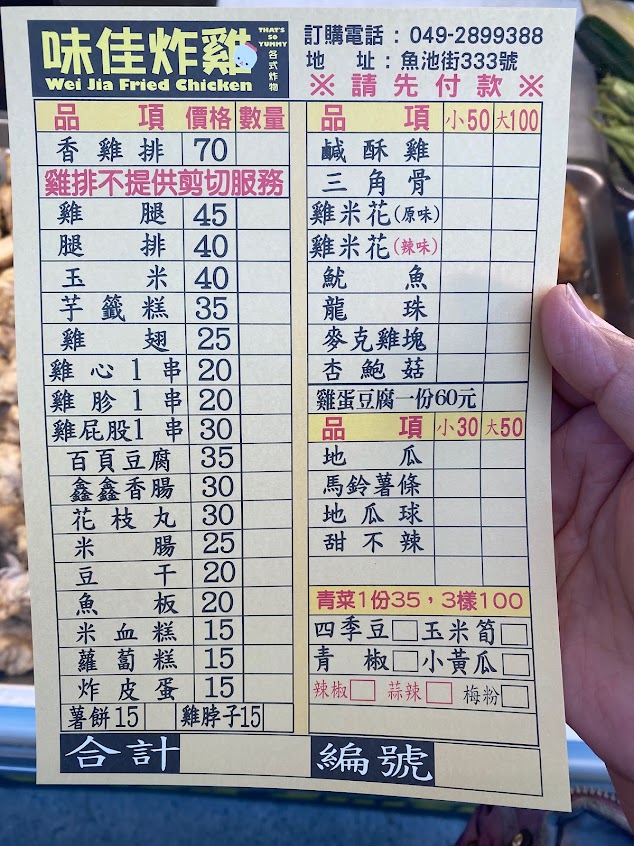 味佳炸雞
THAT'S SO YUMMY
各式炸物
Wei Jia Fried Chicken
訂購電話：049-2899388
地 址：魚池街333號
※請先付款※
品項 價格 數量
香雞排 70
雞排不提供剪切服務
雞腿 45
腿排 40
玉米 40
芋籤糕 35
雞翅 25
雞心1串 20
雞胗1串 20
雞屁股1串 30
百頁豆腐 35
鑫鑫香腸 30
花枝丸 30
米腸 25
豆干 20
魚板 20
米血糕 15
蘿蔔糕 15
炸皮蛋 15
薯餅15 雞脖子15
合計
品項 小50 大100
鹹酥雞
三角骨
雞米花(原味)
雞米花(辣味)
魷魚
龍珠
麥克雞塊
杏鮑菇
雞蛋豆腐一份60元
品項 小30 大50
地瓜
馬鈴薯條
地瓜球
甜不辣
青菜1份35，3樣100
四季豆 玉米筍
青椒 小黃瓜
辣椒 蒜辣 梅粉
編號